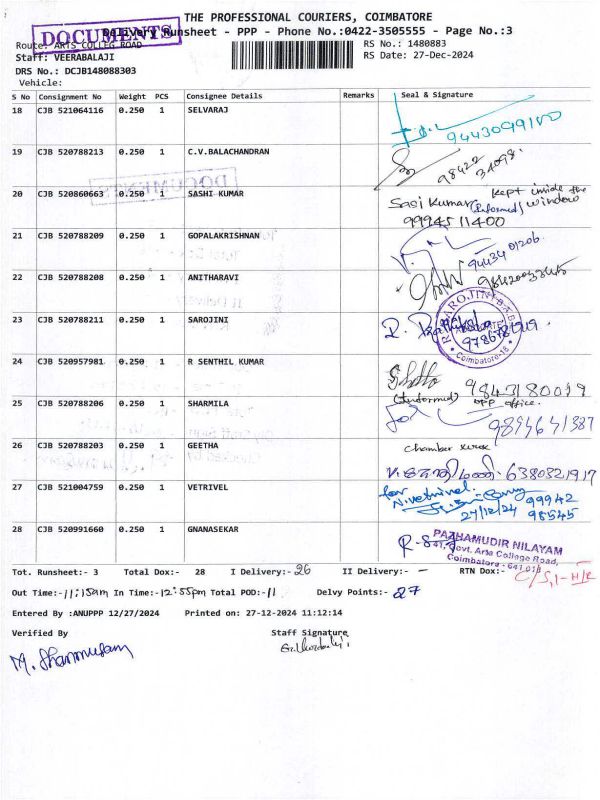 THE PROFESSIONAL COURIERS, COIMBATORE
DOCUMENTS
Delivery Runsheet - PPP - Phone No.:0422-3505555 - Page No.:3
Route: ARTS COLLEG ROAD
RS No.: 1480883
Staff: VEERABALAJI
RS Date: 27-Dec-2024
DRS No.: DCJB148088303
Vehicle:
S No Consignment No Weight PCS Consignee Details Remarks Seal & Signature
18 CJB 521064116 0.250 1 SELVARAJ
19 CJB 520788213 0.250 1 C.V.BALACHANDRAN
98422 34098.
DOCUMENTS
20 CJB 520860663 0.250 1 SASHI KUMAR
Sasi Kumar (Informed) Kept inside the window
9994511400
21 CJB 520788209 0.250 1 GOPALAKRISHNAN
22 CJB 520788208 0.250 1 ANITHARAVI
23 CJB 520788211 0.250 1 SAROJINI
Coimbatore-18
24 CJB 520957981 0.250 1 R SENTHIL KUMAR
9843180019
25 CJB 520788206 0.250 1 SHARMILA
(Informed) opp office.
26 CJB 520788203 0.250 1 GEETHA
6380321917
27 CJB 521004759 0.250 1 VETRIVEL
for N.vetrivel.
27/12/24 99942 98545
28 CJB 520991660 0.250 1 GNANASEKAR
PAZHAMUDIR NILAYAM
41, Govt. Arts College Road,
Coimbatore - 641 018
Tot. Runsheet:- 3 Total Dox:- 28 I Delivery:- 26 II Delivery:- - RTN Dox:- C/S,1-H/R
Out Time:- 11:15am In Time:- 12:55pm Total POD:- 11 Delvy Points:- 27
Entered By :ANUPPP 12/27/2024 Printed on: 27-12-2024 11:12:14
Verified By Staff Signature
M. Shanmugam